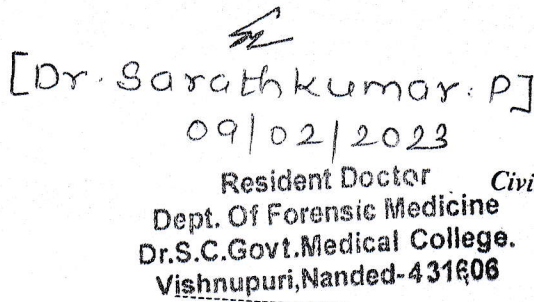 [Dr. Sarathkumar. P]
09/02/2023
Resident Doctor Civi
Dept. Of Forensic Medicine
Dr.S.C.Govt.Medical College.
Vishnupuri,Nanded-431606